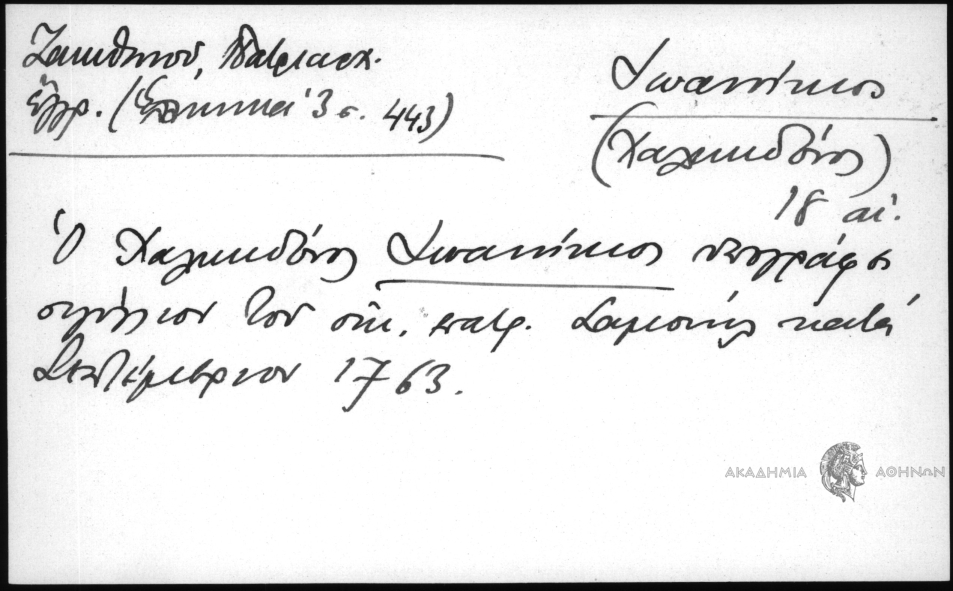 Ζακυθηνοῦ, Πατριαρχ.
ἔγγρ. (Ἑλληνικά 3 σ. 443)
Ἰωαννίκιος
(Χαλκηδόνος)
18 αἰ.
Ὁ Χαλκηδόνος Ἰωαννίκιος ὑπογράφει
σιγίλλιον τοῦ οἰκ. πατρ. Σαμουήλ κατά
Σεπτέμβριον 1763.
ΑΚΑΔΗΜΙΑ ΑΘΗΝΩΝ